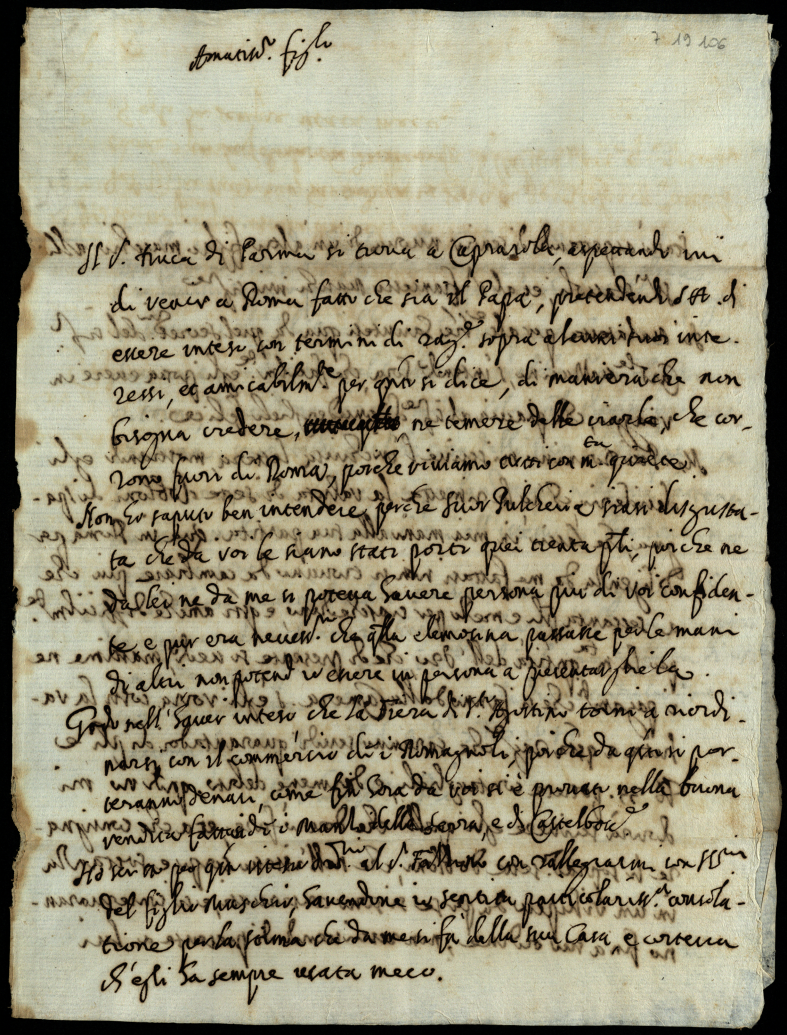 7 19 106
Amatiss.r figl.o
Il S. Duca di Parma si troua a Caprarola, aspettandosi
di venir a Roma fatto che sia il Papa, pretendendo S. A. di
essere inteso con termini di rag.e sopra alcuni suoi inte-
ressi, et amicabilm.te per q.to si dice, di maniera che non
bisogna credere, ne temere delle ciarle, che cor-
rono fuori di Roma, poiche viuiamo tutti con m.ta quiete.
Non ho saputo ben intendere, perche Suor Pulcheria siasi disgusta-
ta che da voi le siano stati porti quei trenta g.li, poiche ne
da lei ne da me si poteua hauere persona piu di voi confiden-
te e pur era necess.o che q.lla elemosina passasse per le mani
di altri non potend'io essere in persona a presentargliela.
Godo nell'hauer inteso che la Fiera di S. Agostino torni a riordi-
narsi con il commercio di i Romagnoli, poiche da q.ti si por-
teranno denari, come fin hora da voi si è prouato nella buona
vendita fatta di i della Serra, e di Castelbol.e
Ho scritto per q.to al S. con rallegrarmi con S.S.
del figlio Maschio, hauendone io sentita particolariss.a consola-
tione per la stima che da me si fa della sua Casa e cortesia
ch'egli ha sempre usata meco.